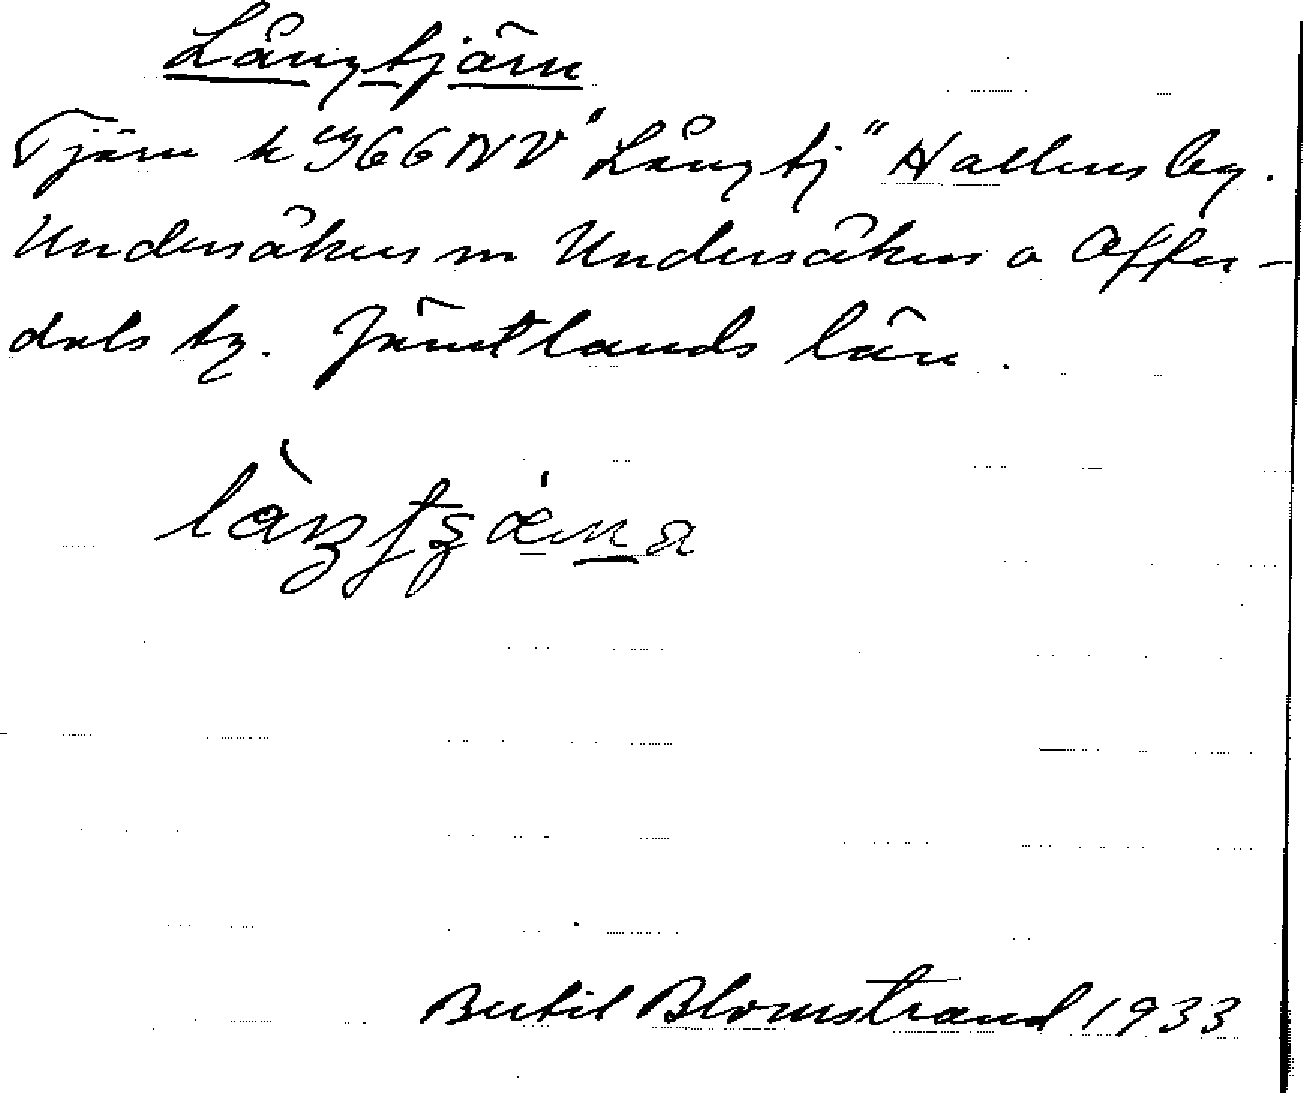 Långtjärn
Tjärn k 66 NV "Långtj" Hallens lg.
Undersåkers sn Undersåkers o Offer-
dals tg. Jämtlands län.
Bertil Blomstrand 1933